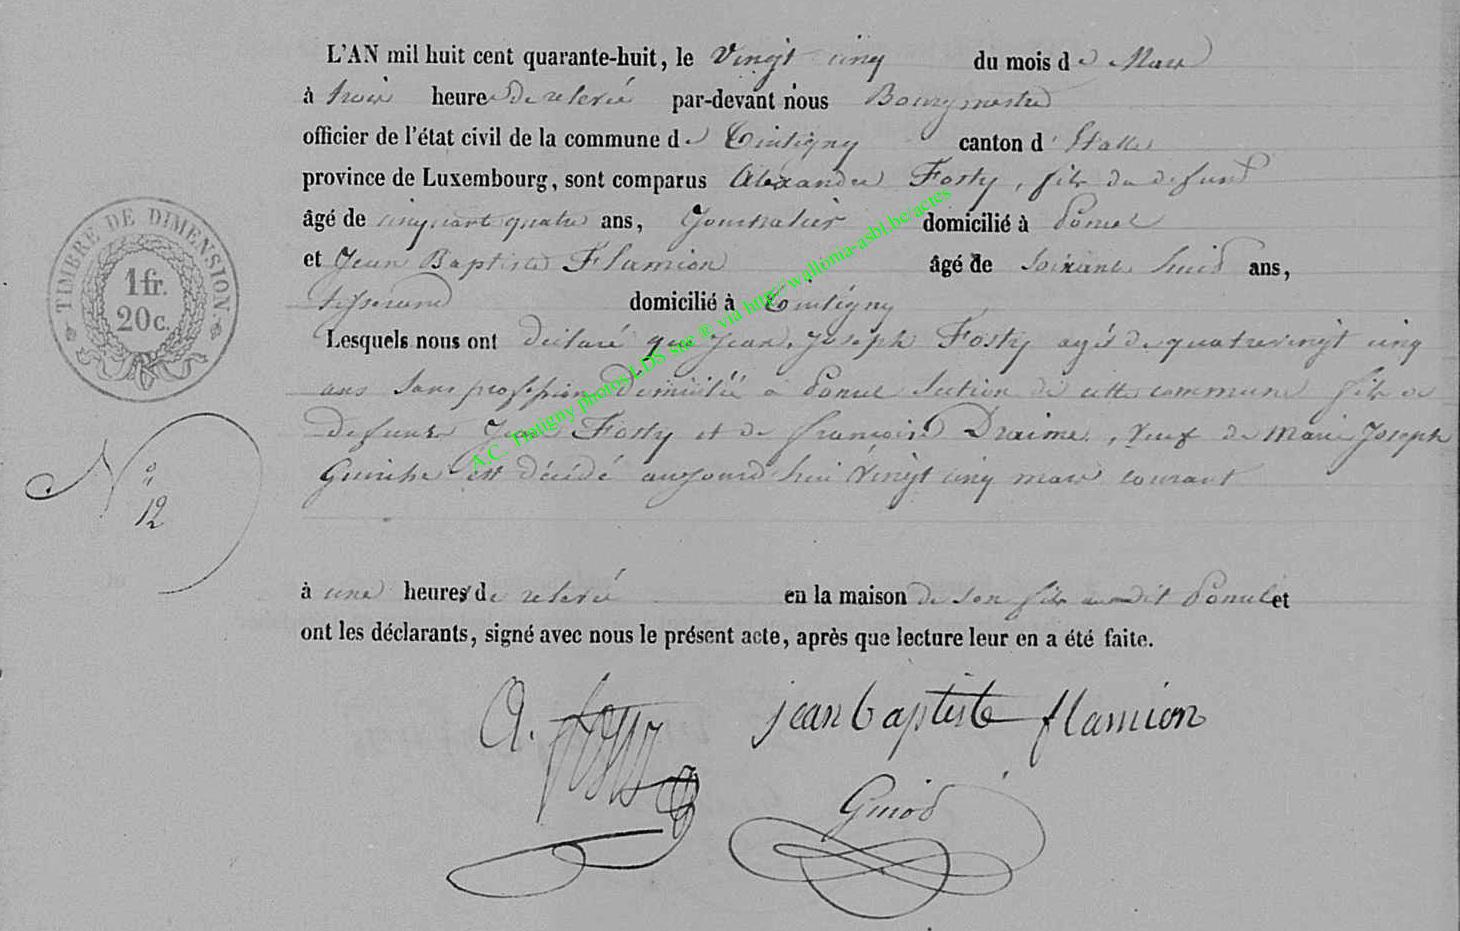 L'AN mil huit cent quarante-huit, le Vingt cinq du mois de Mars
à trois heure de relevée par-devant nous Bourgmestre
officier de l'état civil de la commune de Tintigny canton d'Etalle
province de Luxembourg, sont comparus Alexandre Fosty, fils du defunt
âgé de cinquante quatre ans, Journalier domicilié à Poncel
et Jean Baptiste Flamion âgé de soixante huit ans,
tisserand domicilié à Tintigny
Lesquels nous ont déclaré que Jean Joseph Fosty agé de quatrevingt cinq
ans sans profession domicilié à Poncel section de cette commune fils de
defunts Jean Fosty et de françoise Draime, veuf de Marie Joseph
est décédé aujourd'hui Vingt cinq mars courant
à une heures de relevée en la maison de son fils audit Poncel et
ont les déclarants, signé avec nous le présent acte, après que lecture leur en a été faite.
TIMBRE DE DIMENSION
1 fr.
20 c.
N° 12
A. fosty jean baptiste flamion
Guiod
A.C. Tintigny photos LDS scc ® via http://wallonia-asbl.be/actes